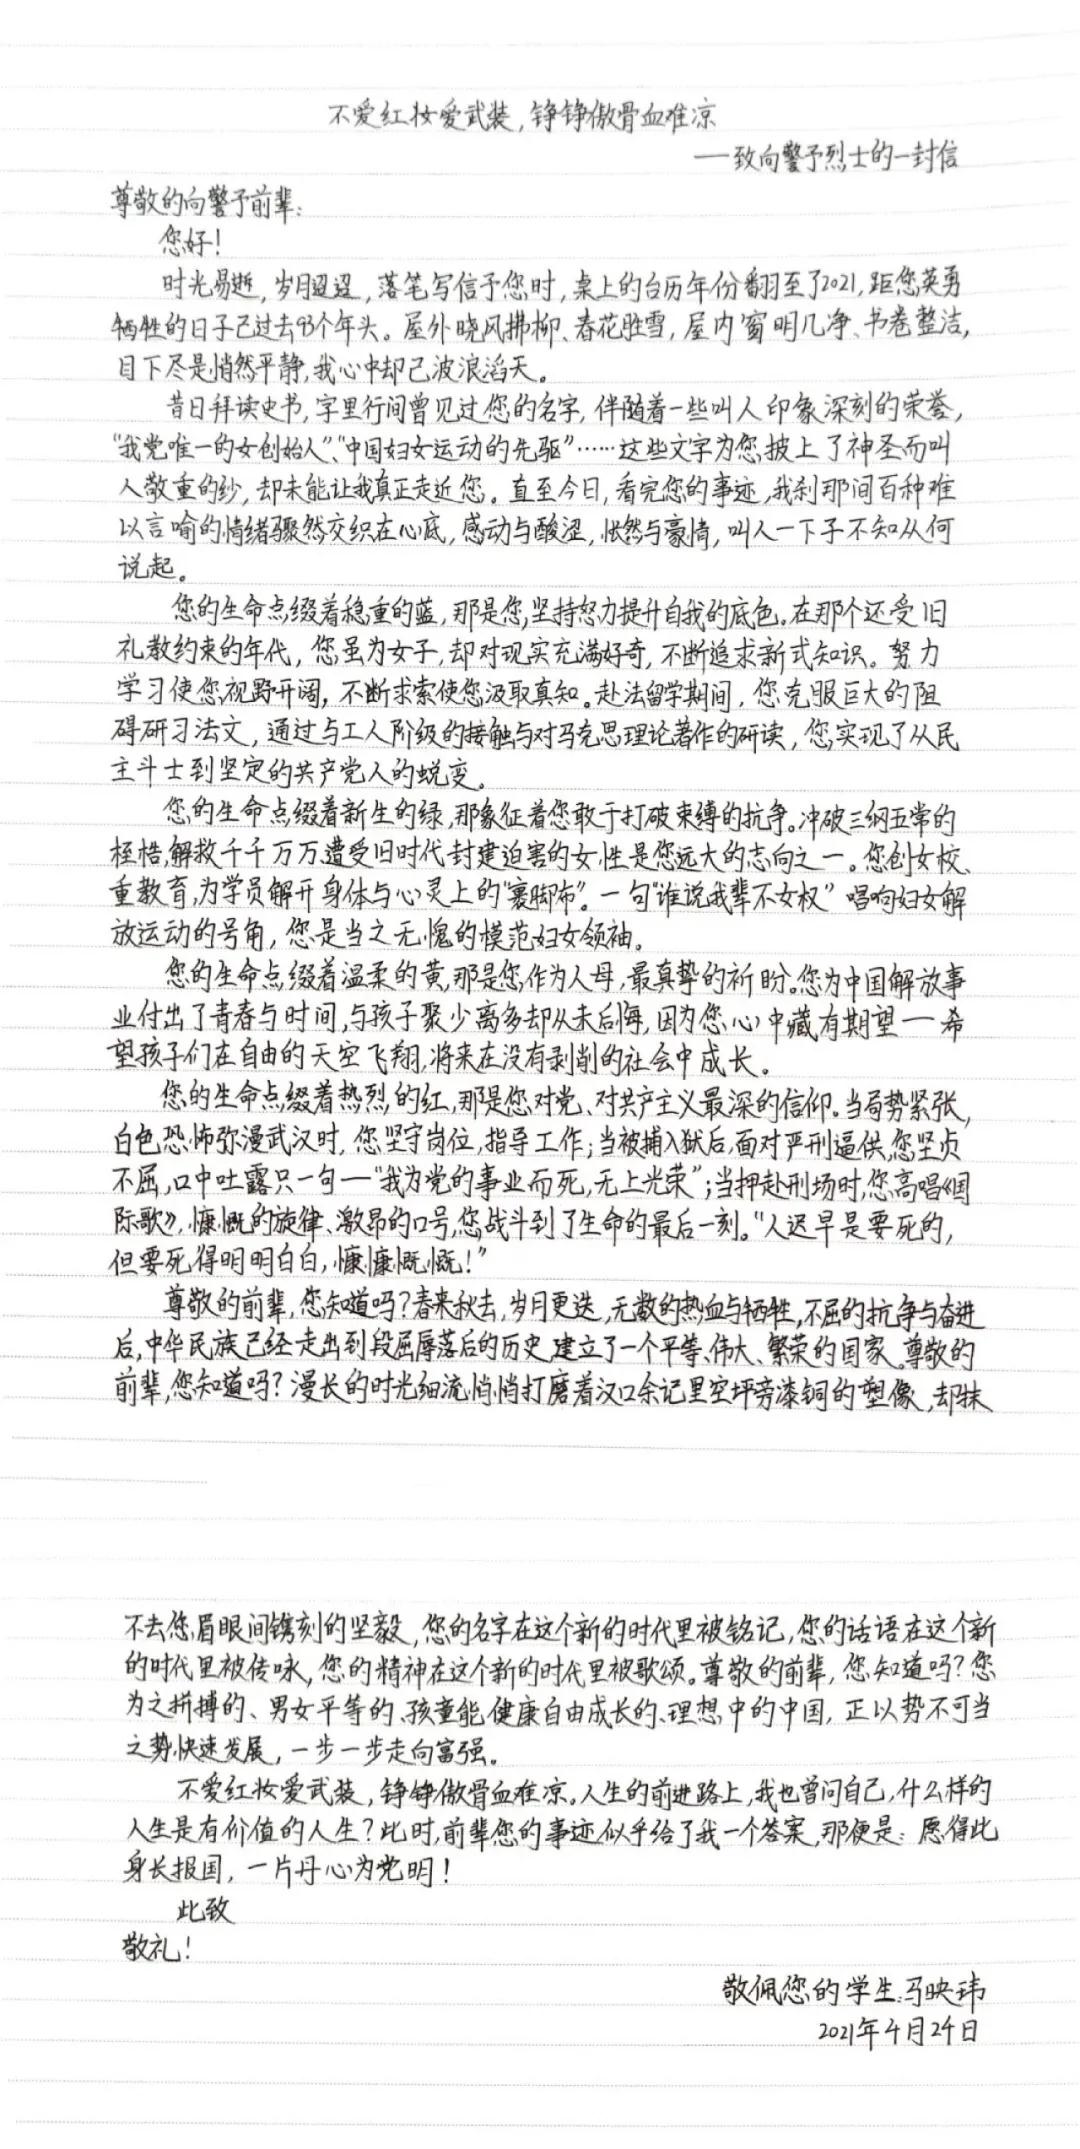 不爱红妆爱武装，铮铮傲骨血难凉
——致向警予烈士的一封信
尊敬的向警予前辈：
您好！
时光易逝，岁月迢迢，落笔写信予您时，桌上的台历年份翻至了2021，距您英勇
牺牲的日子已过去93个年头。屋外晓风拂柳、春花胜雪，屋内窗明几净、书卷整洁，
目下尽是悄然平静，我心中却已波浪滔天。
昔日拜读史书，字里行间曾见过您的名字，伴随着一些叫人印象深刻的荣誉，
“我党唯一的女创始人”、“中国妇女运动的先驱”……这些文字为您披上了神圣而叫
人敬重的纱，却未能让我真正走近您。直至今日，看完您的事迹，我刹那间百种难
以言喻的情绪骤然交织在心底，感动与酸涩，怅然与豪情，叫人一下子不知从何
说起。
您的生命点缀着稳重的蓝，那是您坚持努力提升自我的底色。在那个还受旧
礼教约束的年代，您虽为女子，却对现实充满好奇，不断追求新式知识。努力
学习使您视野开阔，不断求索使您汲取真知。赴法留学期间，您克服巨大的阻
碍研习法文，通过与工人阶级的接触与对马克思理论著作的研读，您实现了从民
主斗士到坚定的共产党人的蜕变。
您的生命点缀着新生的绿，那象征着您敢于打破束缚的抗争。冲破三纲五常的
桎梏，解救千千万万遭受旧时代封建迫害的女性是您远大的志向之一。您创女校、
重教育，为学员解开身体与心灵上的“裹脚布”。一句“谁说我辈不女权”唱响妇女解
放运动的号角，您是当之无愧的模范妇女领袖。
您的生命点缀着温柔的黄，那是您作为人母，最真挚的祈盼。您为中国解放事
业付出了青春与时间，与孩子聚少离多却从未后悔，因为您心中藏有期望——希
望孩子们在自由的天空飞翔，将来在没有剥削的社会中成长。
您的生命点缀着热烈的红，那是您对党、对共产主义最深的信仰。当局势紧张，
白色恐怖弥漫武汉时，您坚守岗位，指导工作；当被捕入狱后，面对严刑逼供，您坚贞
不屈，口中吐露只一句——“我为党的事业而死，无上光荣”；当押赴刑场时，您高唱《国
际歌》，慷慨的旋律、激昂的口号，您战斗到了生命的最后一刻。“人迟早是要死的，
但要死得明明白白，慷慷慨慨！”
尊敬的前辈，您知道吗？春来秋去，岁月更迭，无数的热血与牺牲，不屈的抗争与奋进
后，中华民族已经走出到段屈辱落后的历史，建立了一个平等、伟大、繁荣的国家。尊敬的
前辈，您知道吗？漫长的时光细流悄悄打磨着汉口余记里空坪旁漆铜的塑像，却抹
不去您眉眼间镌刻的坚毅，您的名字在这个新的时代里被铭记，您的话语在这个新
的时代里被传咏，您的精神在这个新的时代里被歌颂。尊敬的前辈，您知道吗？您
为之拼搏的、男女平等的、孩童能健康自由成长的、理想中的中国，正以势不可当
之势快速发展，一步一步走向富强。
不爱红妆爱武装，铮铮傲骨血难凉。人生的前进路上，我也曾问自己，什么样的
人生是有价值的人生？此时，前辈您的事迹似乎给了我一个答案，那便是：愿得此
身长报国，一片丹心为党明！
此致
敬礼！
敬佩您的学生：马映玮
2021年4月24日